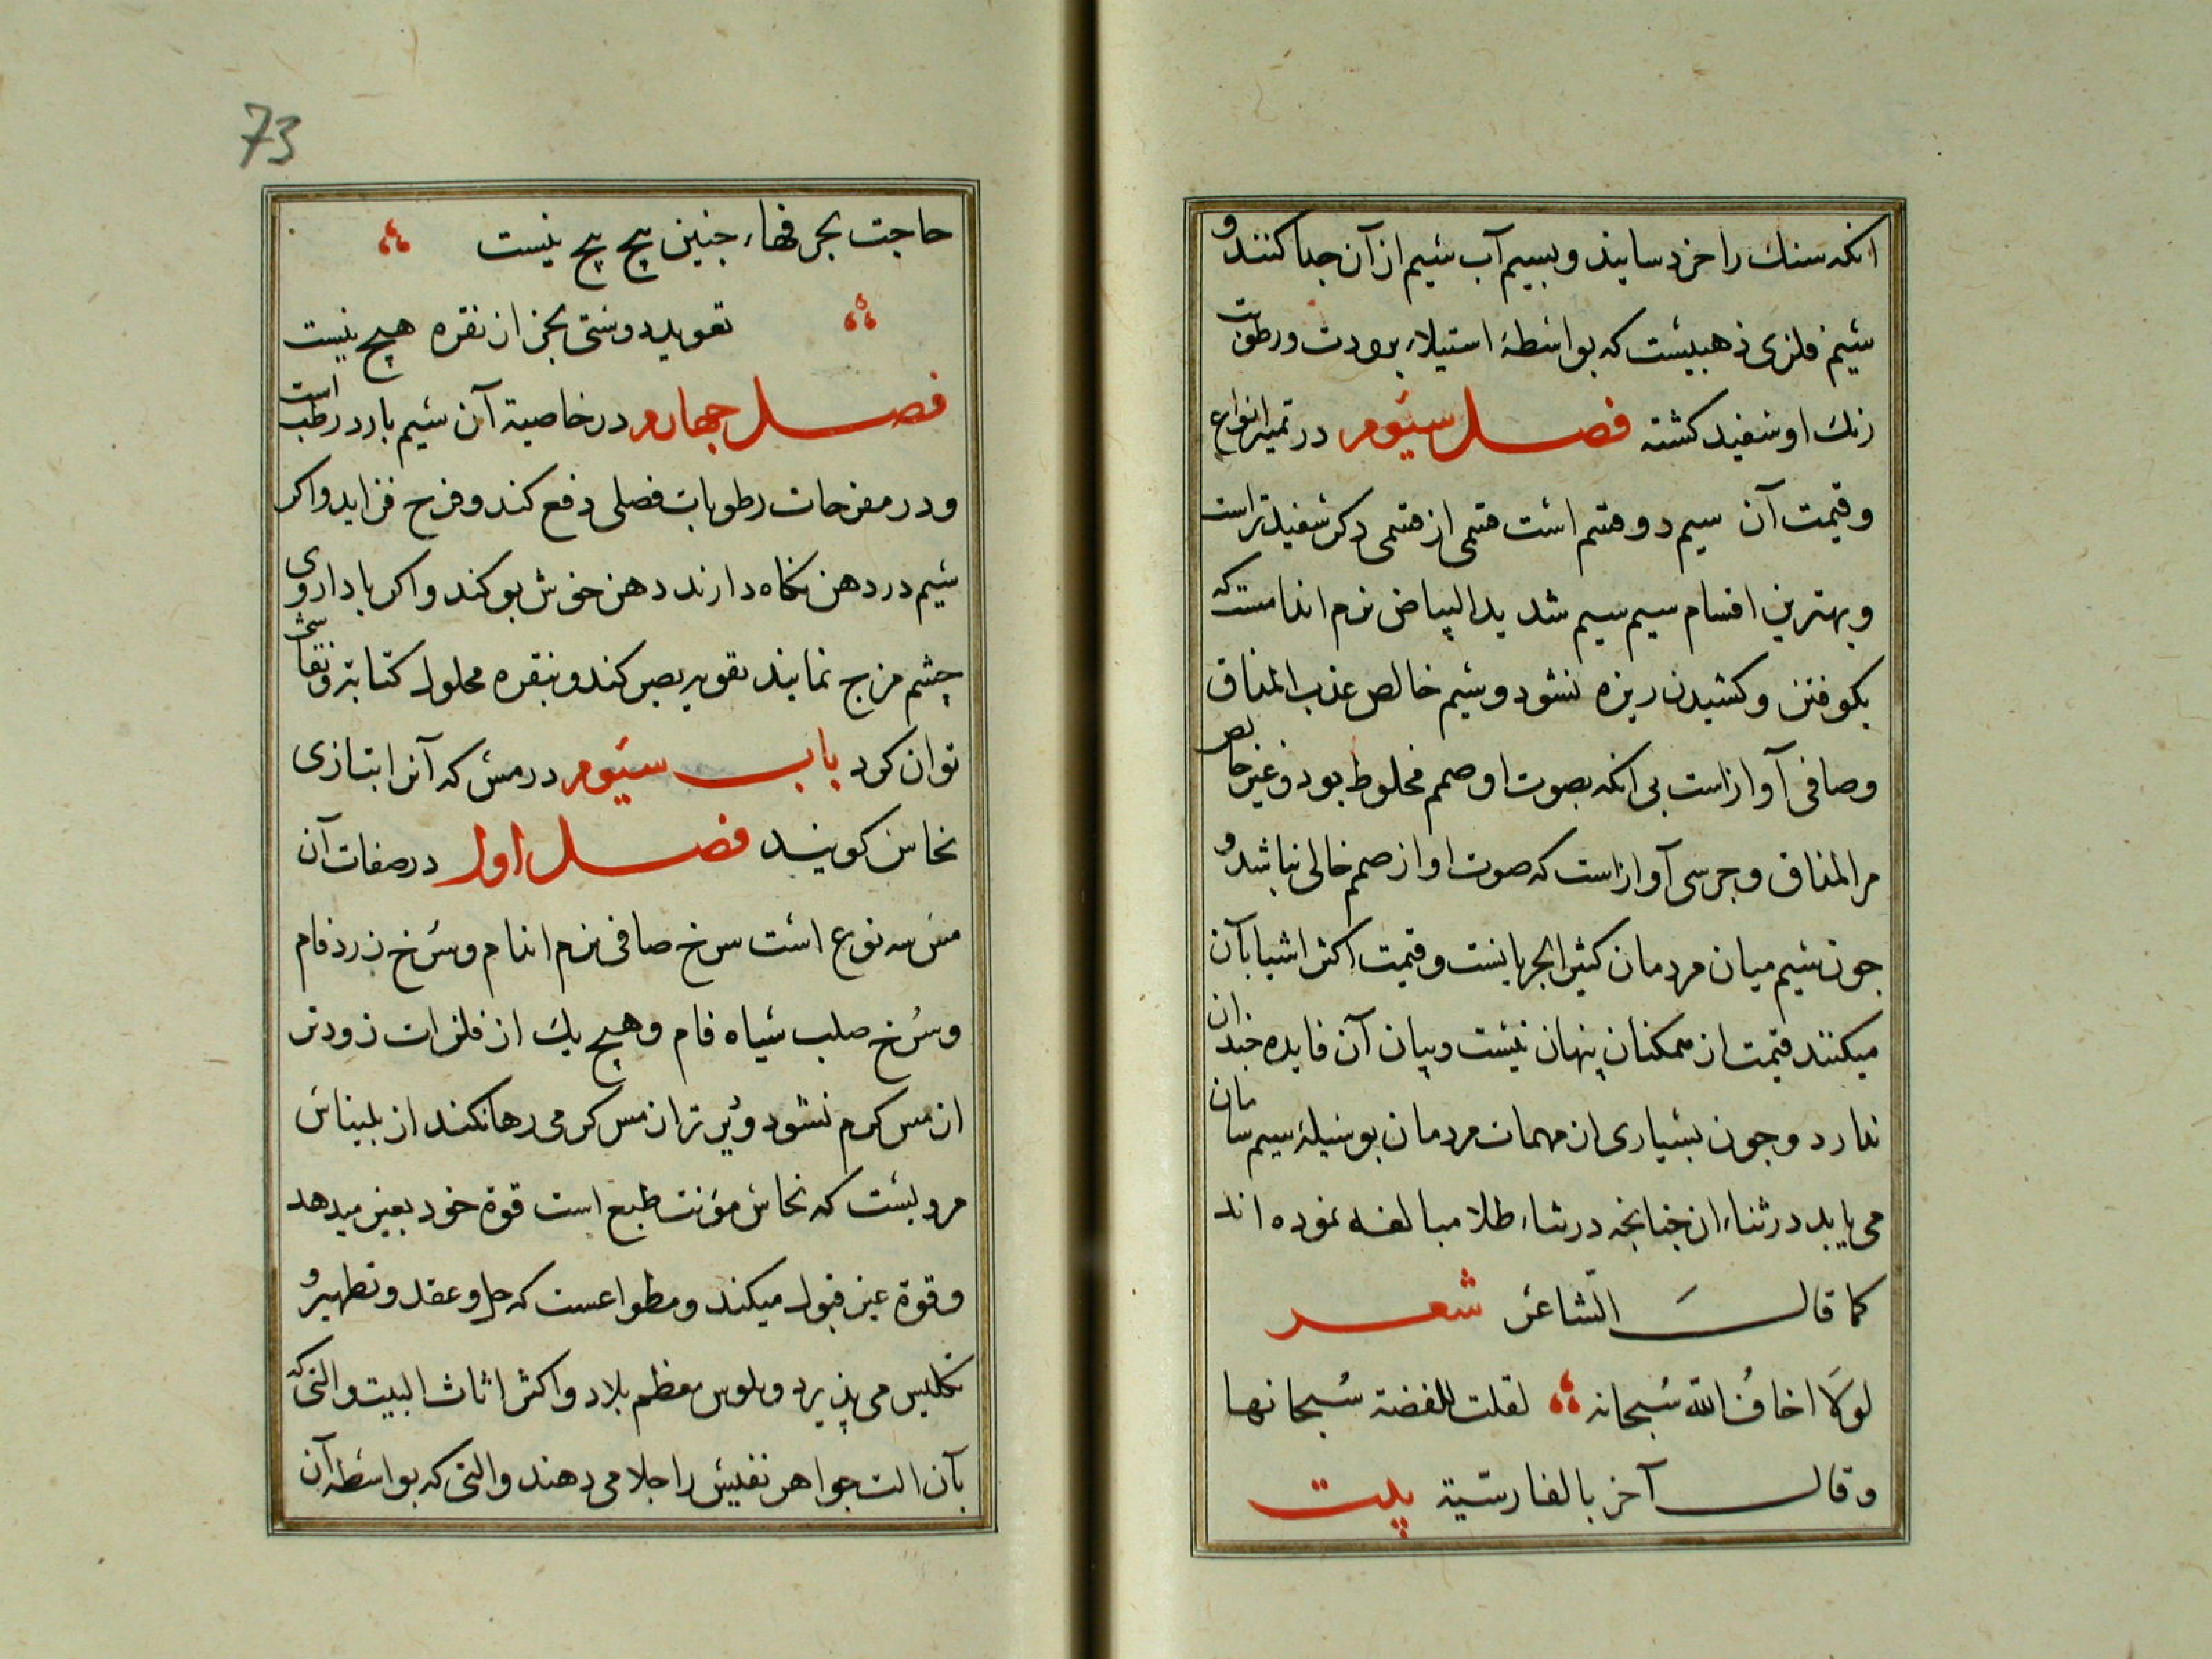 انکه سنك را خرد سایند و بسیم آب سیم از آن جدا کنند و
سیم فلزی ذهبیست که بواسطهٔ استیلاء برودت ورطوبت
رنك او سفید کشته فصل سیوم در تمیز انواع
وقیمت آن سیم دو قسم است قسمی از قسمی دکر سفیدتر است
و بهترین اقسام سیم سیم شدید البیاض نرم اندامست که
بکوفتن و کشیدن ریزه نشود و سیم خالص عذب المذاق
وصافی آوازست بی انکه بصوت او صمم مخلوط بود و غیر خالص
مر المذاق و جرسی آوازست که صوت او از صمم خالی نباشد و
جون سیم میان مردمان کثیر الجریانست و قیمت اکثر اشیا بآن
میکنند قیمت از ممکنان پنهان نیست و بیان آن فایده جندان
ندارد و جون بسیاری از مهمات مردمان بوسیلهٔ سیم سامان
می یابد در ثناء ان جنانجه در ثناء طلا مبالغه نموده اند
کما قال الشاعر شعر
لولا اخاف الله سبحانه لقلت للفضة سبحانها
وقال آخر بالفارسیّة بیت
73
حاجت بجر فهاء جنین پیج پیج نیست
تعوید دوستی بجز از نقره هیچ نیست
فصل جهارم در خاصیة آن سیم بارد رطب است
و در مفرحات رطوبات فصلی دفع کند و فرح فزاید و اکر
سیم در دهن نکاه دارند دهن خوش بو کند و اکر با داروی
چشم مزج نمایند تقویه بصر کند و بنقره محلول کتابة و نقاشی
توان کرد باب سیوم در مس که آنرا بتازی
نحاس کویند فصل اول در صفات آن
مس سه نوع است سرخ صافی نرم اندام و سرخ زرد فام
و سرخ صلب سیاه فام و هیچ یك از فلزات زودتر
از مس کرم نشود و دیرتر از مس کرمی رها نکند از بلیناس
مرویست که نحاس مؤنث طبع است قوة خود بغیر میدهد
و قوة غیر قبول میکند و مطواعست که حل و عقد و تطهیر و
تکلیس می پذیرد و فلوس معظم بلاد و اکثر اثاث البیت و التی که
بآن الت جواهر نفیس را جلا می دهند و التی که بواسطه آن